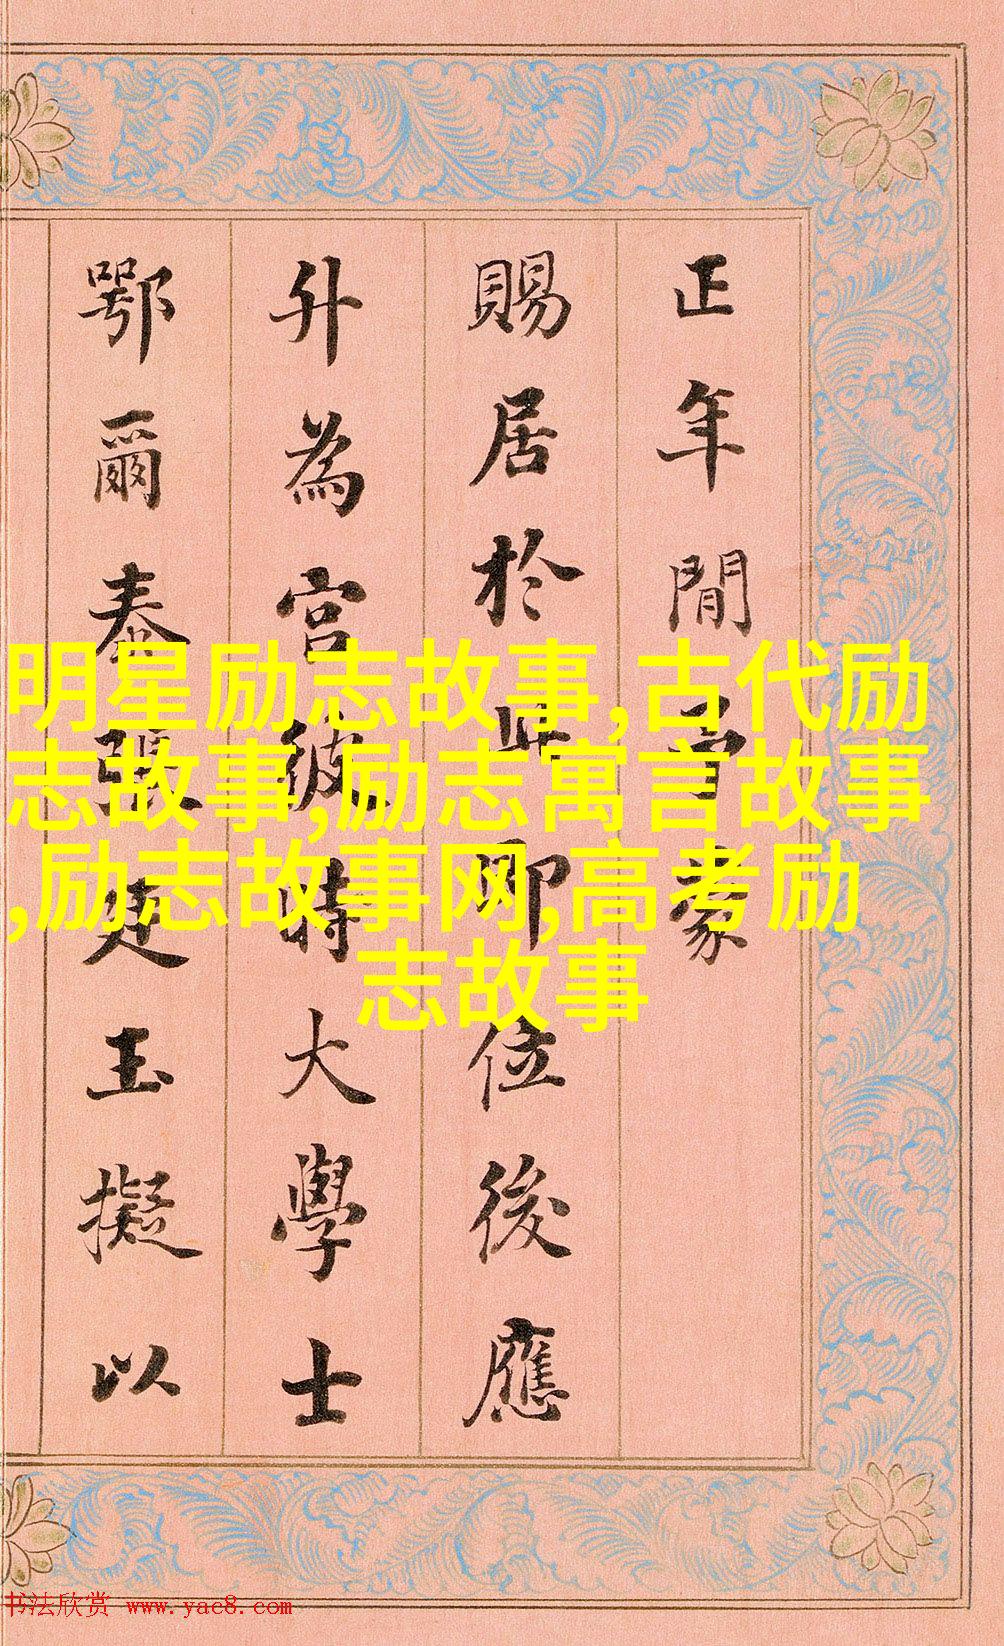 正年間予蒙
賜居於此即位後應
升為宮彼時大學士
鄂爾泰張廷玉擬以
明星励志故事,古代励
志故事,励志寓言故事
,励志故事网,高考励
志故事
书法欣赏 www.yac8.com